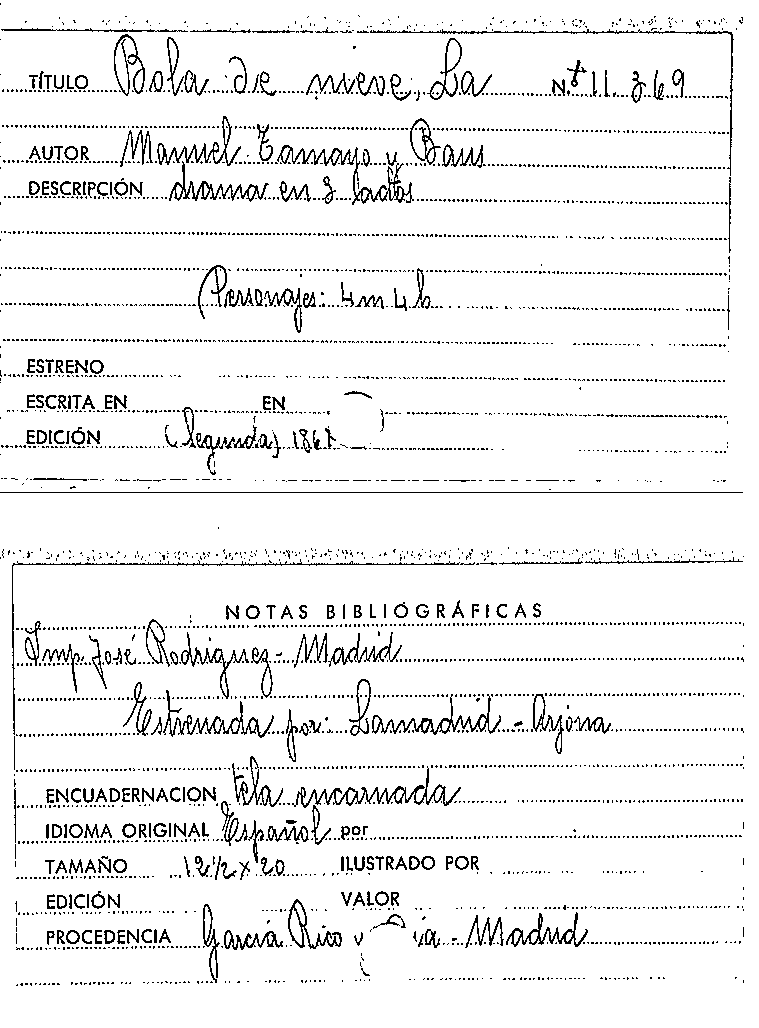 TÍTULO Bola de nieve, La N.º 11.369
AUTOR Manuel Tamayo y Baus
DESCRIPCIÓN drama en 3 actos
Personajes: 4 m 4 h
ESTRENO
ESCRITA EN EN
EDICIÓN (Segunda)
NOTAS BIBLIOGRÁFICAS
Imp. José Rodríguez - Madrid
Estrenada por: Lamadrid - Arjona
ENCUADERNACION tela encarnada
IDIOMA ORIGINAL Español por
TAMAÑO 12 1/2 x 20 ILUSTRADO POR
EDICIÓN VALOR
PROCEDENCIA García Rico - Madrid